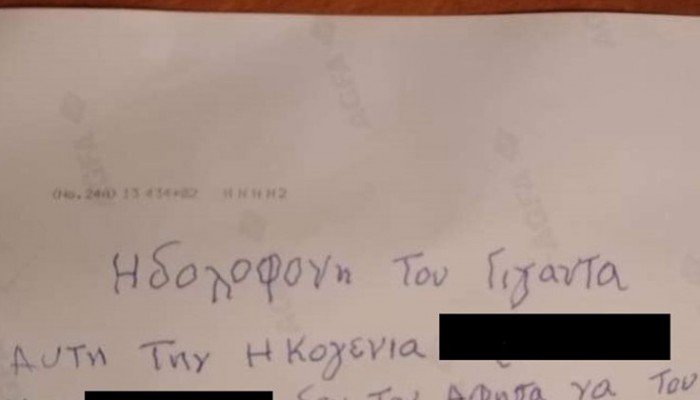 (No.24A) 13 434+82 N N N N2
Η δολοφονη του Γιγαντα
Αυτη Την Η Κογενια
δεν Του Αφησα να του